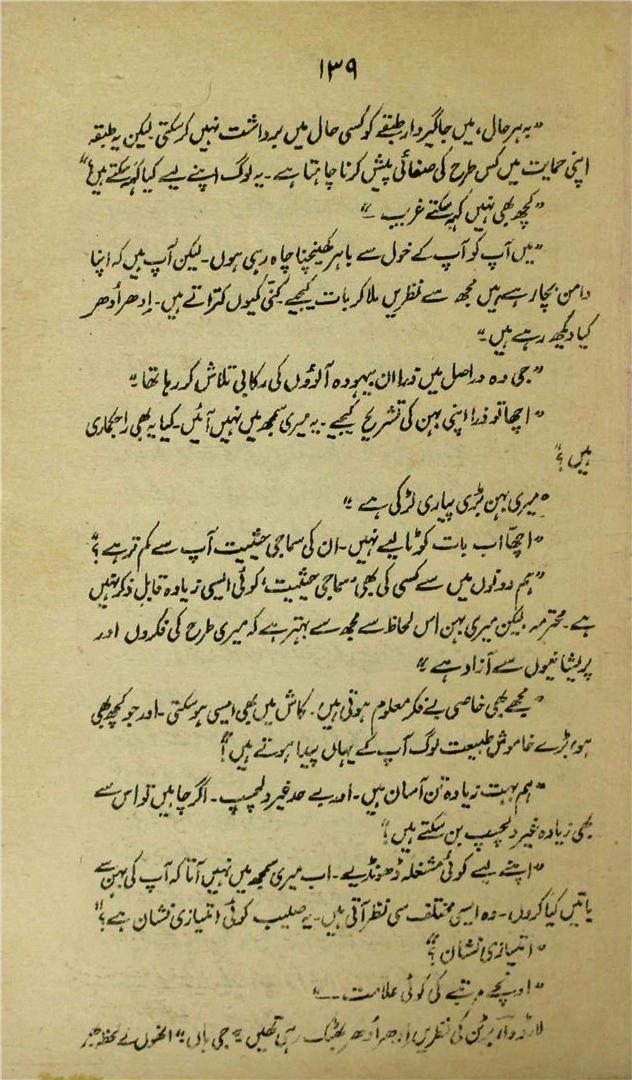 ۱۳۹
"بہر حال، میں جاگیردار طبقے کو کسی حال میں برداشت نہیں کر سکتی لیکن یہ طبقہ
اپنی حمایت میں کس طرح کی صفائی پیش کرنا چاہتا ہے۔ یہ لوگ اپنے لیے کیا کہہ سکتے ہیں؟"
"کچھ بھی نہیں کہہ سکتے غریب۔"
"میں آپ کو آپ کے خول سے باہر کھینچنا چاہ رہی ہوں۔ لیکن آپ ہیں کہ اپنا
دامن بچا رہے ہیں مجھ سے نظریں ملا کر بات کیجیے کنّی کیوں کتراتے ہیں۔ ادھر اُدھر
کیا دیکھ رہے ہیں۔"
"جی وہ دراصل میں ذرا ان بیہودہ آلوؤں کی رکابی تلاش کر رہا تھا۔"
"اچھا تو ذرا اپنی بہن کی تشریح کیجیے۔ یہ میری سمجھ میں نہیں آئیں۔ کیا یہ بھی راجکماری
ہیں؟"
"میری بہن بڑی پیاری لڑکی ہے۔"
"اچھا اب بات کو ٹالیے نہیں۔ ان کی سماجی حیثیت آپ سے کم تر ہے؟"
"ہم دونوں میں سے کسی کی بھی 'سماجی حیثیت' کوئی ایسی زیادہ قابلِ ذکر نہیں
ہے۔ محترمہ لیکن میری بہن اس لحاظ سے مجھ سے بہتر ہے کہ میری طرح کی فکروں اور
پریشانیوں سے آزاد ہے۔"
"مجھے بھی خاصی بے فکر معلوم ہوتی ہیں۔ کاش میں بھی ایسی ہو سکتی۔ اور جو کچھ بھی
ہو، بڑے خاموش طبیعت لوگ آپ کے یہاں پیدا ہوتے ہیں؟"
"ہم بہت زیادہ تن آسان ہیں۔ اور بے حد غیر دلچسپ۔ اگر چاہیں تو اس سے
بھی زیادہ غیر دلچسپ بن سکتے ہیں؟"
"اپنے لیے کوئی مشغلہ ڈھونڈیے۔ اب میری سمجھ میں نہیں آتا کہ آپ کی بہن سے
باتیں کیا کروں۔ وہ ایسی مختلف سی نظر آتی ہیں۔ یہ صلیب کوئی امتیازی نشان ہے؟"
"امتیازی نشان؟"
"اونچے مرتبے کی کوئی علامت۔۔"
کی نظریں ادھر اُدھر بھٹک رہی تھیں۔ "جی ہاں۔" انھوں نے لحظہ بھر